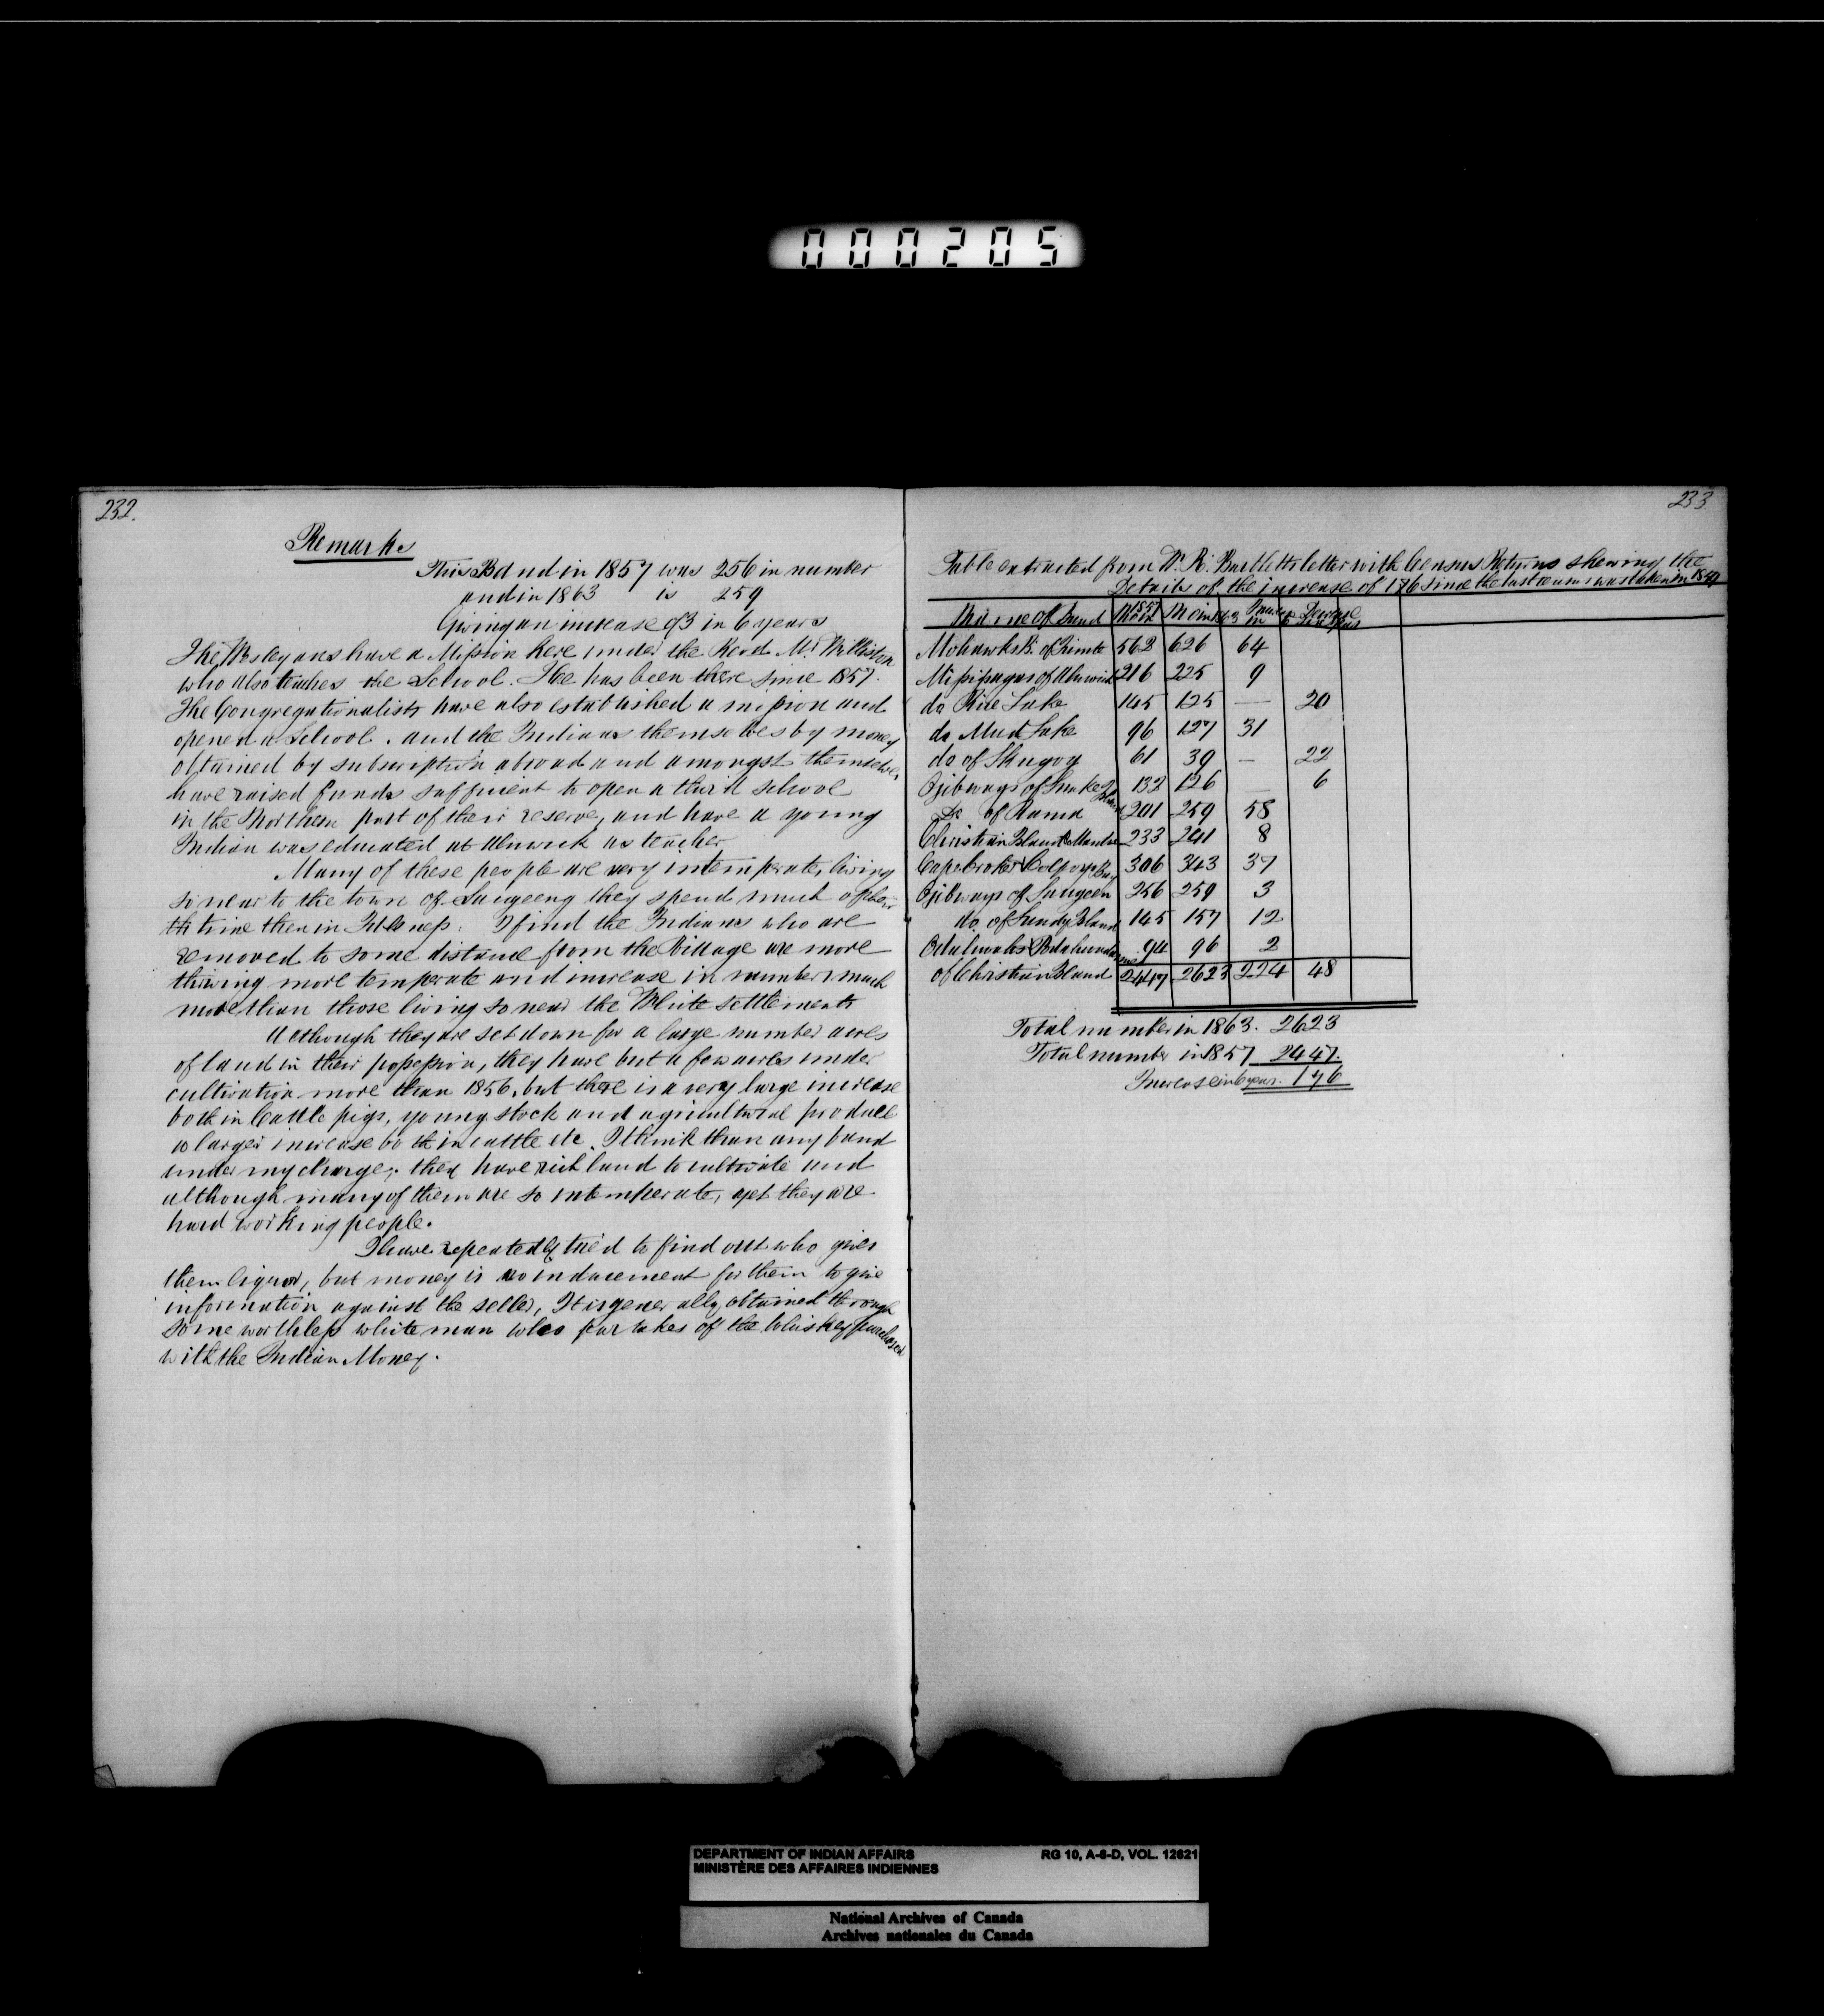 000205
232.
Remarks
This Band in 1857 was 256 in number
and in 1863 is 259
Giving an increase of 3 in 6 years
The Wesleyans have a Mission here under the Revd Mr Williston
who also teaches the School. He has been there since 1857.
The Congregationalists have also established a mission and
opened a School. and the Indians themselves by money
obtained by subscription abroad and amongst themselves
have raised funds sufficient to open a third school
in the Northern part of their reserve, and have a young
Indian was educated at Alnwick as teacher
Many of these people are very intemperate, living
so near to the town of Saugeeng they spend much of their
time then in Idleness. I find the Indians who are
removed to some distance from the Village are more
thriving more temperate and increase in number much
more than those living so near the White settlements
Although they are set down for a large number acres
of land in their possession, they have but a few acres under
cultivation more than 1856, but there is a very large increase
both in Cattle pigs, young stock and agricultural produce
a larger increase both in cattle etc. I think than any band
under my charge; they have rich land to cultivate and
although many of them are so intemperate, yet they are
hard working people.
I have repeatedly tried to find out who gives
them liquor, but money is no inducement for them to give
information against the seller, It is generally obtained through
some worthless white man who partakes of the Whiskey purchased
with the Indian Money.
233
Table extracted from W. R. Bartletts letter with Census Returns shewing the
Details of the increase of 176 since the last census was taken in 1857
Name of Band 1857 No in No in 63 Decrease
Mohawks B. of Quinte 562 626 64
Missisagas of Alnwick 216 225 9
do Rice Lake 145 125 — 20
do Mud Lake 96 127 31
do of Skugog 61 39 — 22
Ojibways of Snake Island 132 126 — 6
Do of Rama 201 259 58
Christian Island 233 241 8
Cape Croker & Colpoys Bay 306 343 37
Ojibways of Saugeen 256 259 3
do of Sandy Island 145 157 12
94 96 2
of Christian Island 2447 2623 224 48
Total number in 1863. 2623
Total number in 1857 2447.
Increase in 6 years. 176
DEPARTMENT OF INDIAN AFFAIRS RG 10, A-6-D, VOL. 12621
MINISTÈRE DES AFFAIRES INDIENNES
National Archives of Canada
Archives nationales du Canada